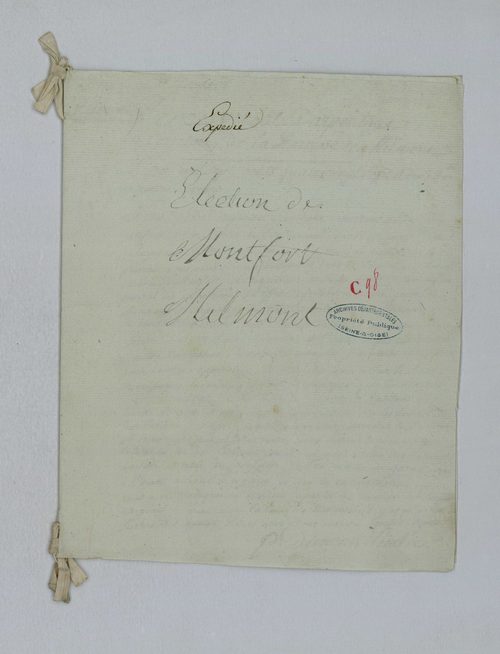 Expedié
Election de
Montfort
Milmont
C 98
ARCHIVES DÉPARTEMENTALES
Propriété Publique
(SEINE-&-OISE)